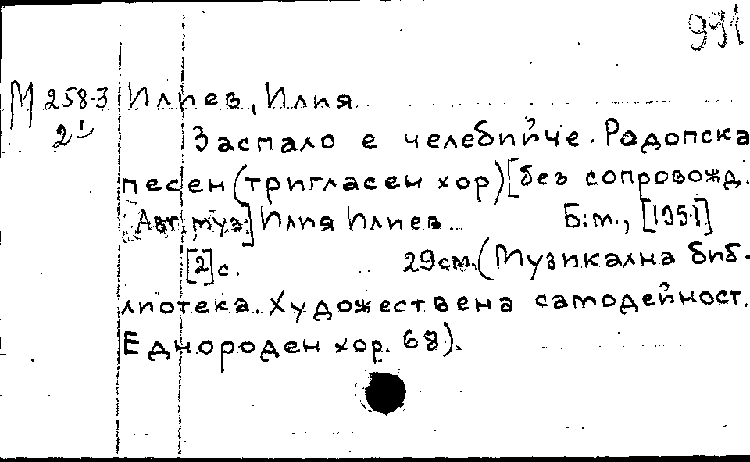 991
М 258-3 Илиев, Илия
2¹ Заспало е челебийче. Родопска
песен (тригласен хор) [без сопровожд.
Авт. муз.] Илия Илиев. Б.т., [1951]
[2] с. 29см. (Музикална биб-
лиотека. Художествена самодейност.
Еднороден хор. 68).